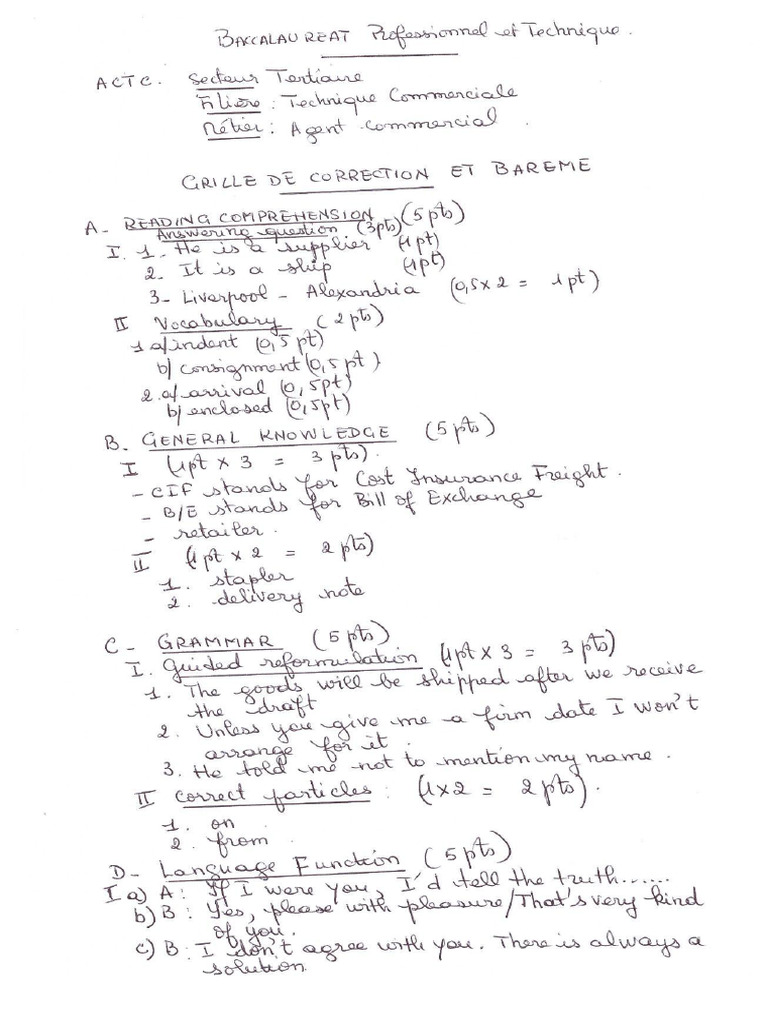 BACCALAUREAT Professionnel et Technique.
ACTC. Secteur Tertiaire
Filière : Technique Commerciale
Métier : Agent commercial.
GRILLE DE CORRECTION ET BAREME
A- READING COMPREHENSION (5 pts)
Answering question (3pts)
I. 1- He is a supplier (1pt)
2- It is a ship (1pt)
3- Liverpool - Alexandria (0,5 x 2 = 1 pt)
II Vocabulary (2 pts)
1 a/indent (0,5 pt)
b/ consignment (0,5 pt)
2. a/ arrival (0,5pt)
b/ enclosed (0,5pt)
B. GENERAL KNOWLEDGE (5 pts)
I (1pt x 3 = 3 pts).
- CIF stands for Cost Insurance Freight.
- B/E stands for Bill of Exchange
- retailer.
II (1 pt x 2 = 2 pts)
1. stapler
2. delivery note
C - GRAMMAR (5 pts)
I. Guided reformulation (1pt x 3 = 3 pts)
1. The goods will be shipped after we receive
the draft
2. Unless you give me a firm date I won't
arrange for it.
3. He told me not to mention my name.
II Correct particles : (1x2 = 2 pts).
1. on
2. from
D- Language Function (5 pts)
I a) A : If I were you, I'd tell the truth......
b) B : Yes, please with pleasure/That's very kind
of you.
c) B : I don't agree with you. There is always a
solution.